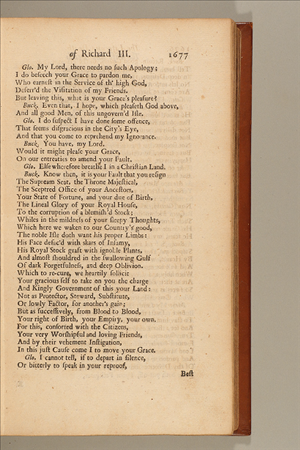 of Richard III. 1677
Glo. My Lord, there needs no such Apology;
I do beseech your Grace to pardon me,
Who earnest in the Service of th' high God,
Deferr'd the Visitation of my Friends.
But leaving this, what is your Grace's pleasure?
Buck. Even that, I hope, which pleaseth God above,
And all good Men, of this ungovern'd Isle.
Glo. I do suspect I have done some offence,
That seems disgracious in the City's Eye,
And that you come to reprehend my Ignorance.
Buck. You have, my Lord.
Would it might please your Grace,
On our entreaties to amend your Fault.
Glo. Else wherefore breathe I in a Christian Land.
Buck. Know then, it is your Fault that you resign
The Supream Seat, the Throne Majestical,
The Sceptred Office of your Ancestors,
Your State of Fortune, and your due of Birth,
The Lineal Glory of your Royal House,
To the corruption of a blemish'd Stock;
Whiles in the mildness of your sleepy Thoughts,
Which here we waken to our Country's good,
The noble Isle doth want his proper Limbs:
His Face defac'd with skars of Infamy,
His Royal Stock graft with ignoble Plants,
And almost shouldred in the swallowing Gulf
Of dark Forgetfulness, and deep Oblivion.
Which to re-cure, we heartily solicit
Your gracious self to take on you the charge
And Kingly Government of this your Land:
Not as Protector, Steward, Substitute,
Or lowly Factor, for another's gain;
But as successively, from Blood to Blood,
Your right of Birth, your Empiry, your own.
For this, consorted with the Citizens,
Your very Worshipful and loving Friends,
And by their vehement Instigation,
In this just Cause come I to move your Grace.
Glo. I cannot tell, if to depart in silence,
Or bitterly to speak in your reproof,
Best